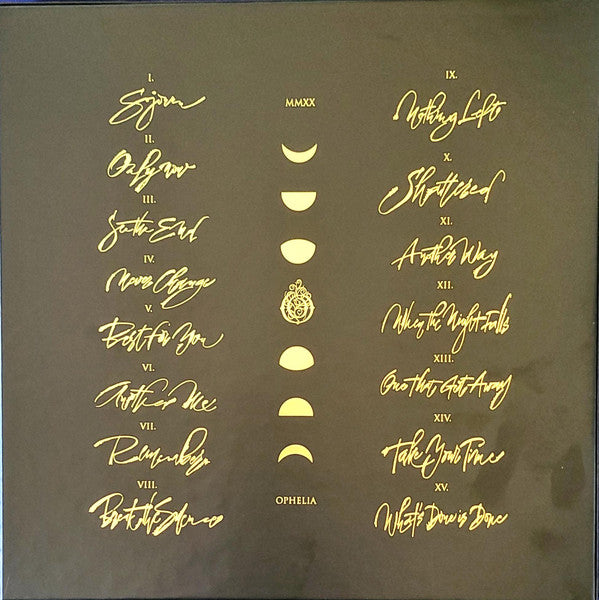 I.
Sojourn
II.
Only Now
III.
See the End
IV.
Never Change
V.
Best For You
VI.
Another Me
VII.
Remember
VIII.
Break the Silence
MMXX
OPHELIA
IX.
Nothing Left
X.
Shattered
XI.
Another Way
XII.
When the Night Falls
XIII.
One That Got Away
XIV.
Take Your Time
XV.
What's Done is Done